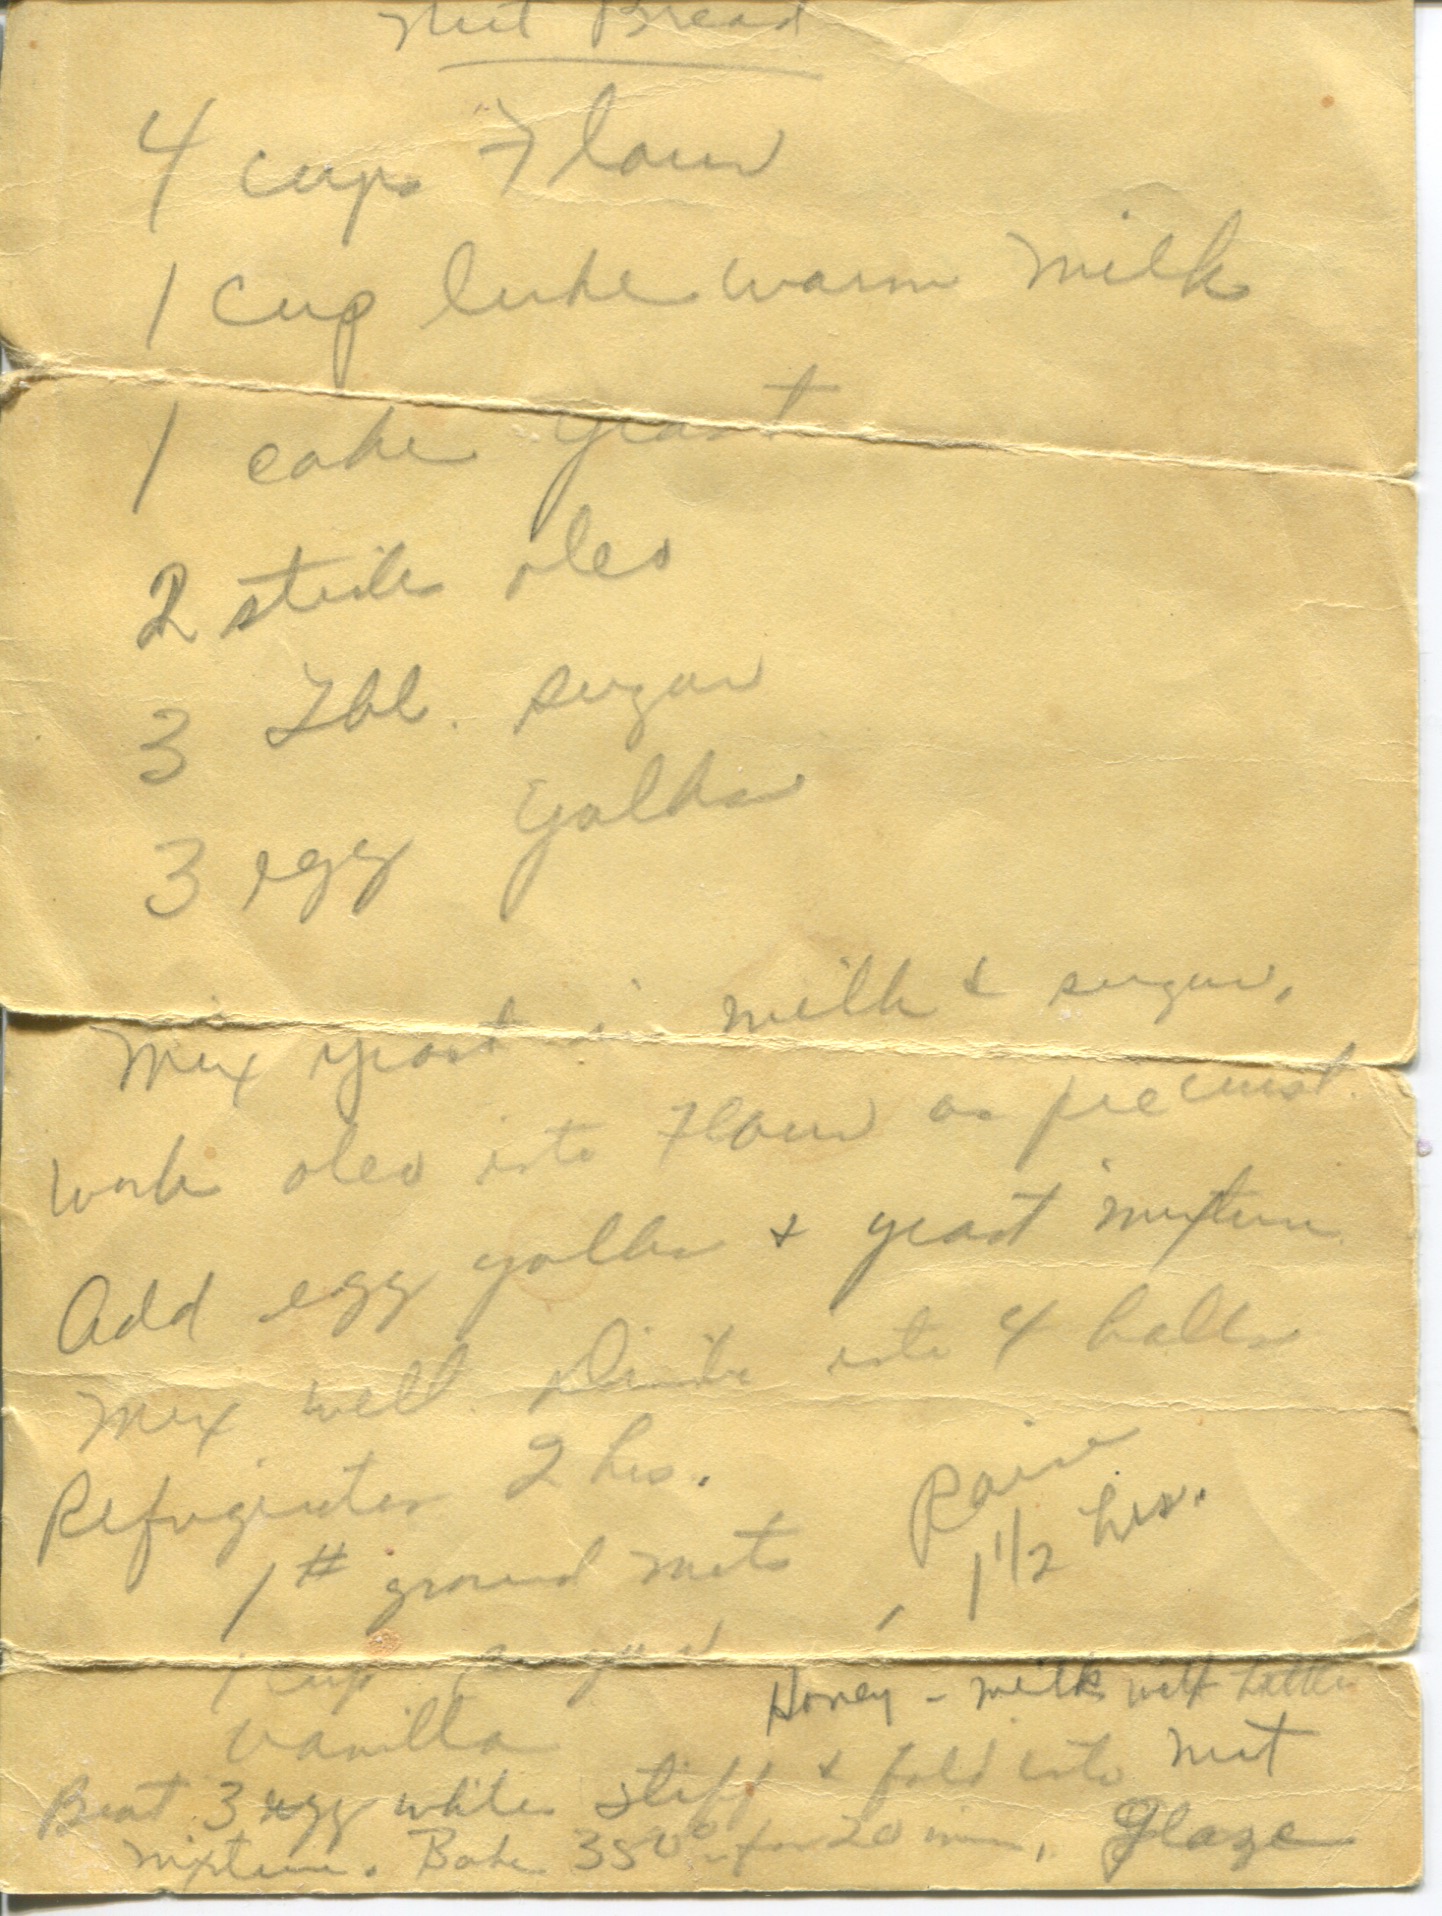 Nut Bread
4 cups Flour
1 cup luke warm milk
1 cake yeast
2 sticks oleo
3 Tbl. sugar
3 egg yolks
Mix yeast in milk & sugar.
Work oleo into Flour as pie crust.
Add egg yolks & yeast mixture
Mix well. Divide into 4 balls
Refrigerates 2 hrs.
Raise
1 1/2 hrs.
1# ground nuts
1 cup sugar
Honey - milk
vanilla
Beat 3 egg whites stiff & fold into nut
mixture. Bake 350° for 20 min. Glaze